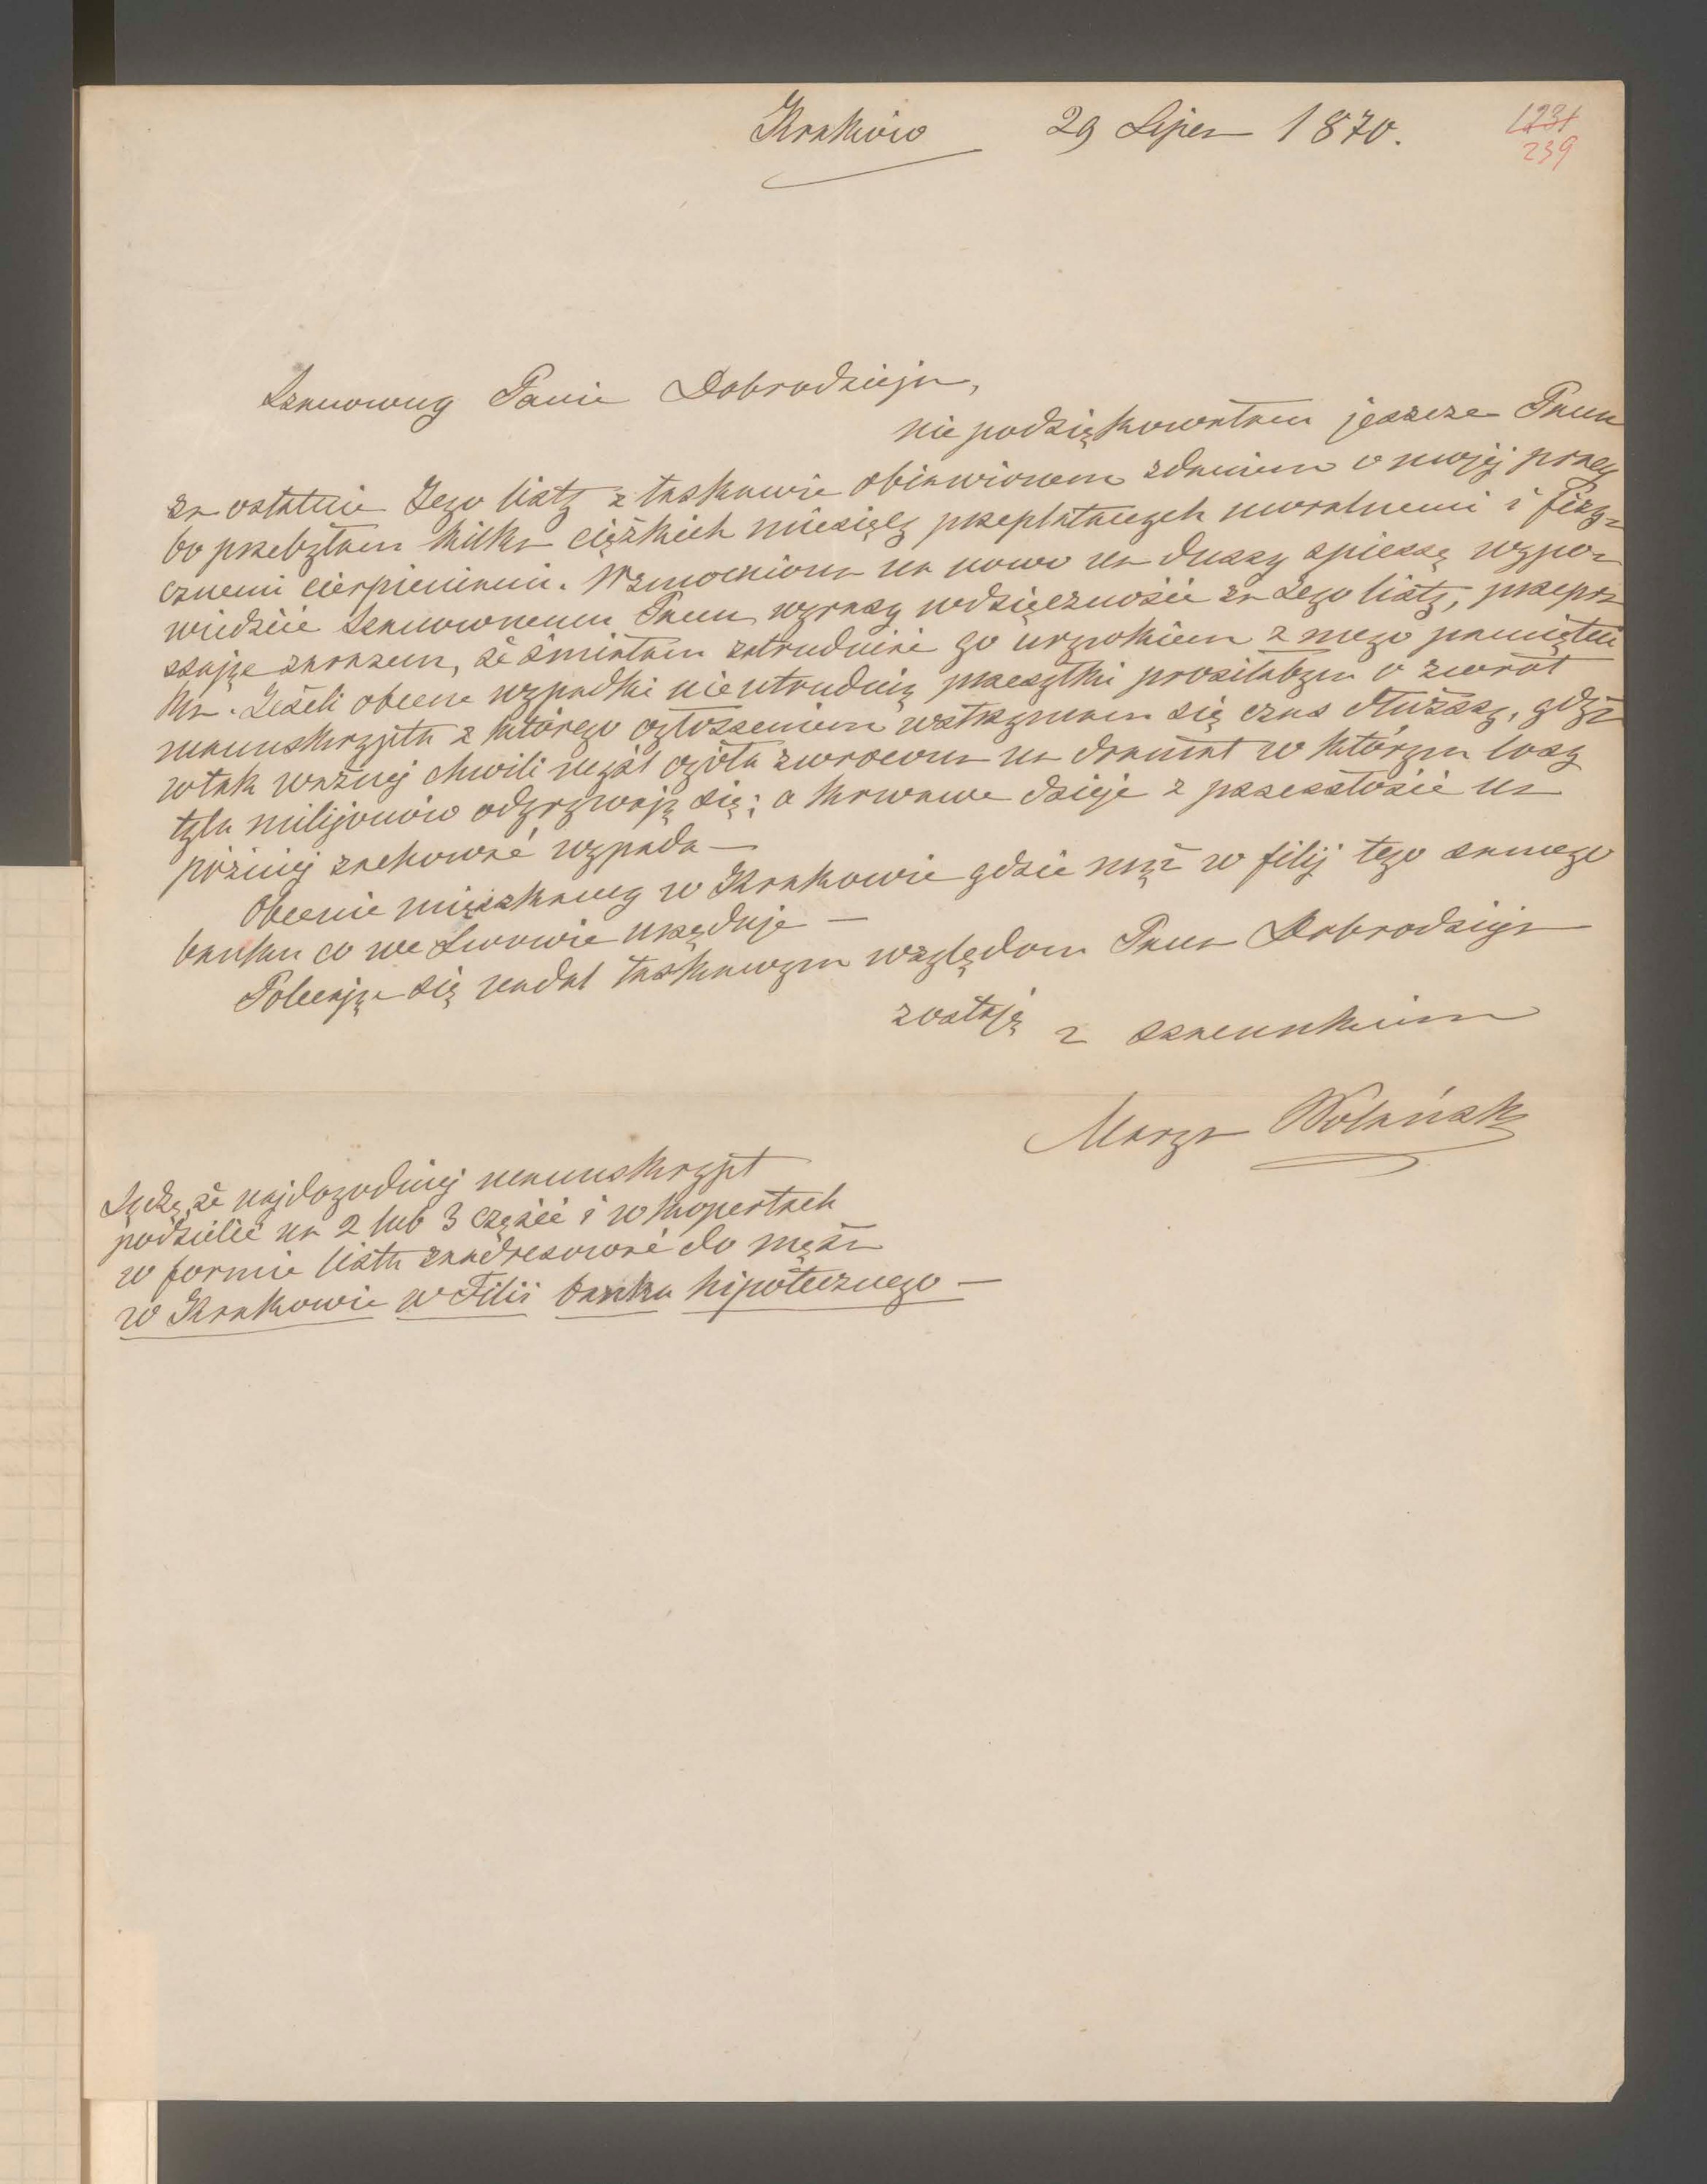 Kraków 29 Lipca 1870.
1231
239
Szanowny Panie Dobrodzieju,
nie podziękowałam jeszcze Panu
za ostatnie Jego listy z łaskawie objawionem zdaniem o mojej pracy
bo przebyłam kilka ciężkich miesięcy przeplatanych moralnemi i fizy=
cznemi cierpieniami. Wzmocniona na nowo na duszy spieszę wypo=
wiedzieć Szanownemu Panu wyrazy wdzięczności za Jego listy, przepra
szając zarazem, że śmiałam zatrudnić go urywkiem z mego pamiętni
ka. Jeżeli obecne wypadki nie utrudnią przesyłki prosiłabym o zwrot
manuskryptu z którego ogłoszeniem wstrzymam się czas dłuższy, gdyż
w tak ważnej chwili myśl ogółu zwrócona na dramat w którym losy
tylu milijonów odgrywają się; a krwawe dzieje z przeszłości na
później zachować wypada —
Obecnie mięszkamy w Krakowie gdzie mąż w filij tego samego
banku co we Lwowie urzęduje —
Polecając się nadal łaskawym względom Pana Dobrodzieja
zostaję z szacunkiem
Marya Wolańska
Sądzę, że najdogodniej manuskrypt
podzielić na 2 lub 3 części i w kopertach
w formie listu zaadresować do męża
w Krakowie w Filii banku hipotecznego —